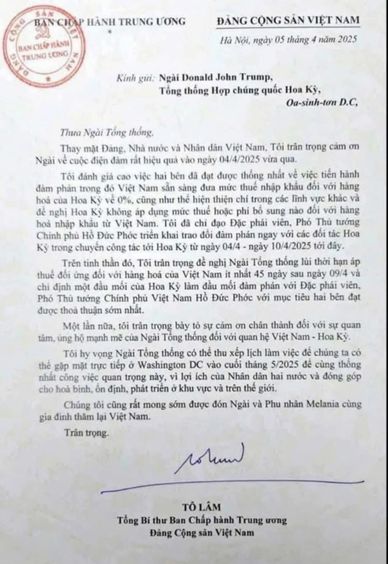 BAN CHẤP HÀNH TRUNG ƯƠNG
*
ĐẢNG CỘNG SẢN VIỆT NAM
Hà Nội, ngày 05 tháng 4 năm 2025
ĐẢNG CỘNG SẢN VIỆT NAM
BAN CHẤP HÀNH
TRUNG ƯƠNG
Kính gửi: Ngài Donald John Trump,
Tổng thống Hợp chúng quốc Hoa Kỳ,
Oa-sinh-tơn D.C,
Thưa Ngài Tổng thống,
Thay mặt Đảng, Nhà nước và Nhân dân Việt Nam, Tôi trân trọng cảm ơn
Ngài về cuộc điện đàm rất hiệu quả vào ngày 04/4/2025 vừa qua.
Tôi đánh giá cao việc hai bên đã đạt được thống nhất về việc tiến hành
đàm phán trong đó Việt Nam sẵn sàng đưa mức thuế nhập khẩu đối với hàng
hoá của Hoa Kỳ về 0%, cũng như thể hiện thiện chí trong các lĩnh vực khác và
đề nghị Hoa Kỳ không áp dụng mức thuế hoặc phí bổ sung nào đối với hàng
hoá nhập khẩu từ Việt Nam. Tôi đã chỉ đạo Đặc phái viên, Phó Thủ tướng
Chính phủ Hồ Đức Phớc triển khai trao đổi đàm phán ngay với các đối tác Hoa
Kỳ trong chuyến công tác tới Hoa Kỳ từ ngày 04/4 - ngày 10/4/2025 tới đây.
Trên tinh thần đó, Tôi trân trọng đề nghị Ngài Tổng thống lùi thời hạn áp
thuế đối ứng đối với hàng hoá của Việt Nam ít nhất 45 ngày sau ngày 09/4 và
chỉ định một đầu mối của Hoa Kỳ làm đầu mối đàm phán với Đặc phái viên,
Phó Thủ tướng Chính phủ Việt Nam Hồ Đức Phớc với mục tiêu hai bên đạt
được thoả thuận sớm nhất.
Một lần nữa, tôi trân trọng bày tỏ sự cảm ơn chân thành đối với sự quan
tâm, ủng hộ mạnh mẽ của Ngài Tổng thống đối với quan hệ Việt Nam - Hoa Kỳ.
Tôi hy vọng Ngài Tổng thống có thể thu xếp lịch làm việc để chúng ta có
thể gặp mặt trực tiếp ở Washington DC vào cuối tháng 5/2025 để cùng thống
nhất công việc quan trọng này, vì lợi ích của Nhân dân hai nước và đóng góp
cho hoà bình, ổn định, phát triển ở khu vực và trên thế giới.
Chúng tôi cũng rất mong sớm được đón Ngài và Phu nhân Melania cùng
gia đình thăm lại Việt Nam.
Trân trọng.
TÔ LÂM
Tổng Bí thư Ban Chấp hành Trung ương
Đảng Cộng sản Việt Nam